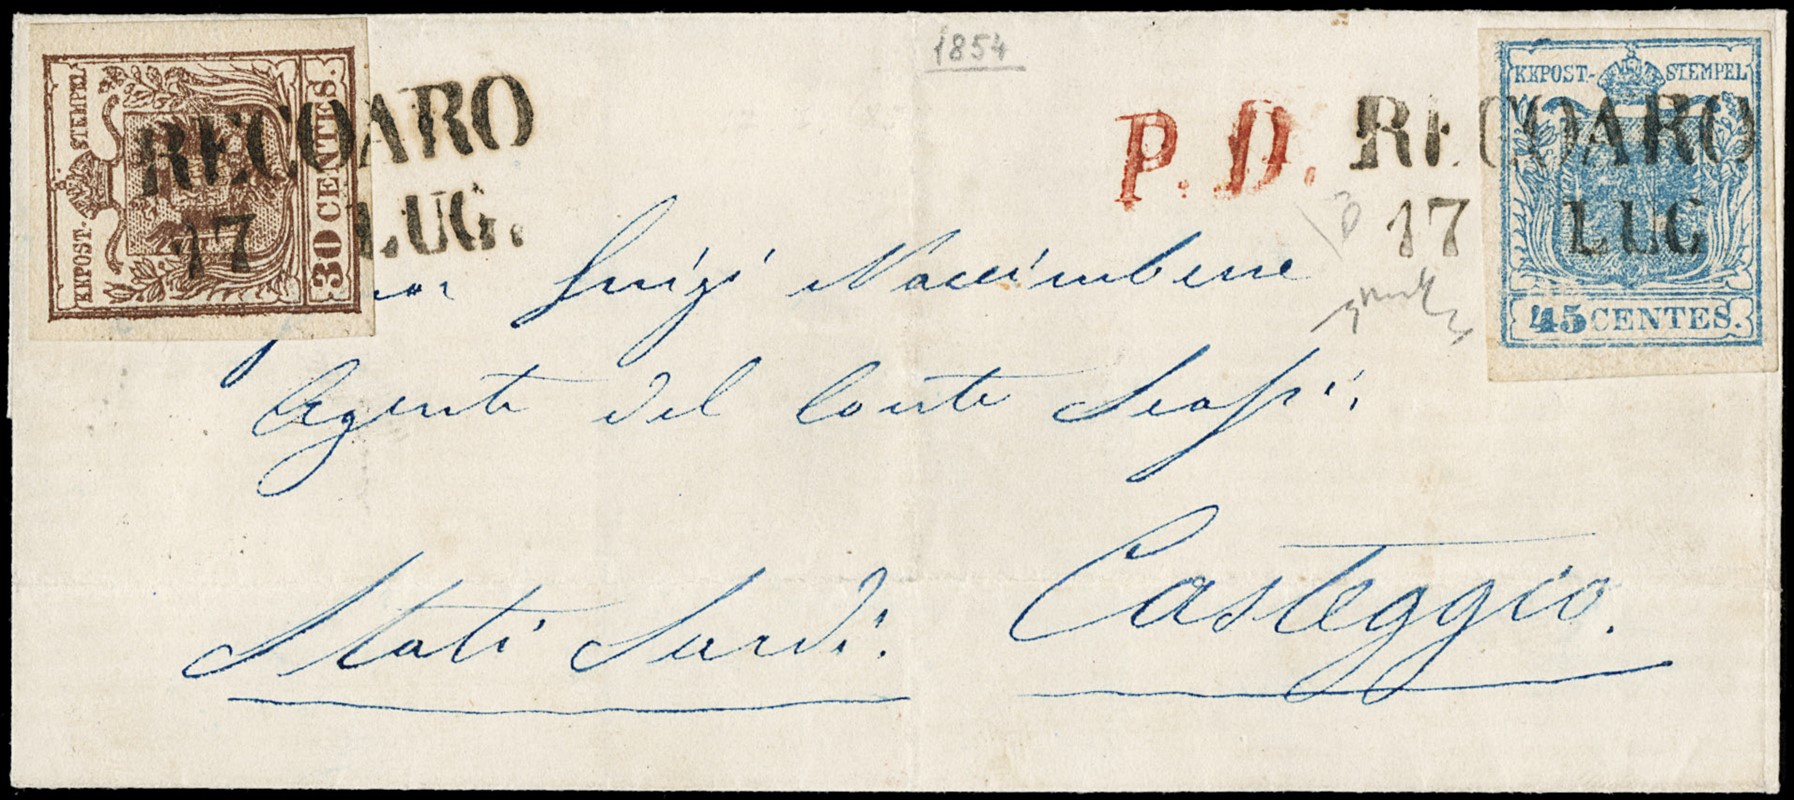 1854
KKPOST-STEMPEL
30 CENTES.
RECOARO
17 LUG.
P. D.
RECOARO
17 LUG
KKPOST-STEMPEL
45 CENTES.
Luigi
Agente del Conte
Stati Sardi. Casteggio.